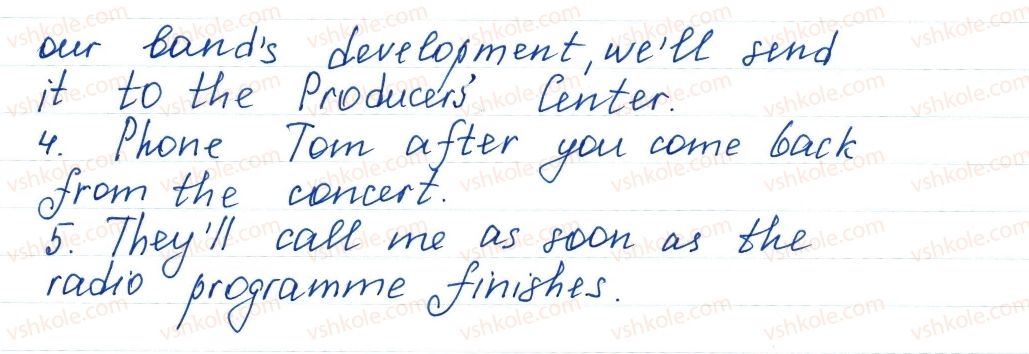 our band's development, we'll send
it to the Producers' Center.
4. Phone Tom after you come back
from the concert.
5. They'll call me as soon as the
radio programme finishes.